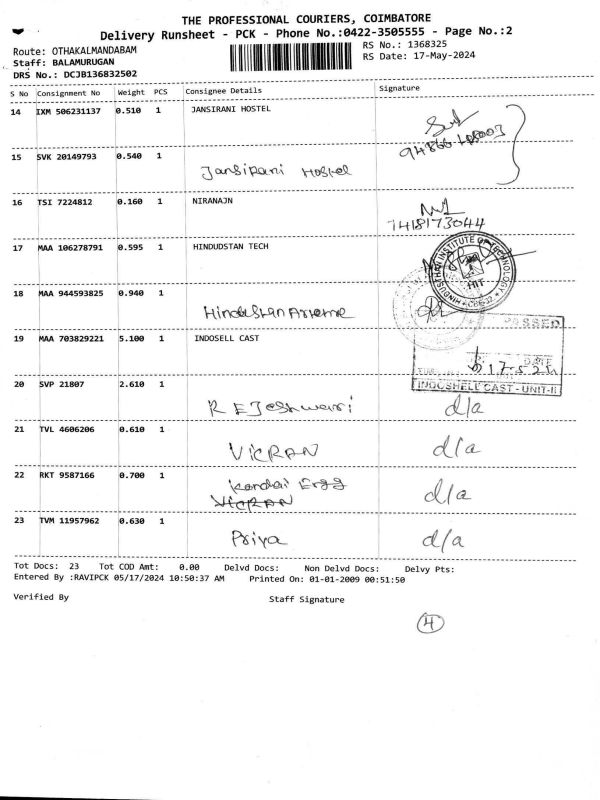 THE PROFESSIONAL COURIERS, COIMBATORE
Delivery Runsheet - PCK - Phone No.:0422-3505555 - Page No.:2
Route: OTHAKALMANDABAM
RS No.: 1368325
Staff: BALAMURUGAN
RS Date: 17-May-2024
DRS No.: DCJB136832502
S No Consignment No Weight PCS Consignee Details Signature
14 IXM 506231137 0.510 1 JANSIRANI HOSTEL
15 SVK 20149793 0.540 1 Jansirani Hostel
16 TSI 7224812 0.160 1 NIRANAJN
7418173044
17 MAA 106278791 0.595 1 HINDUDSTAN TECH
HINDUSTHAN INSTITUTE OF TECHNOLOGY
HIT
CBE-32
18 MAA 944593825 0.940 1
19 MAA 703829221 5.100 1 INDOSELL CAST
PASSED
DATE
17-5-24
INDOSHELL CAST - UNIT-II
20 SVP 21807 2.610 1 d/a
21 TVL 4606206 0.610 1 VICRAN d/a
22 RKT 9587166 0.700 1 d/a
VICRAN
23 TVM 11957962 0.630 1 Priya d/a
Tot Docs: 23 Tot COD Amt: 0.00 Delvd Docs: Non Delvd Docs: Delvy Pts:
Entered By :RAVIPCK 05/17/2024 10:50:37 AM Printed On: 01-01-2009 00:51:50
Verified By Staff Signature
4